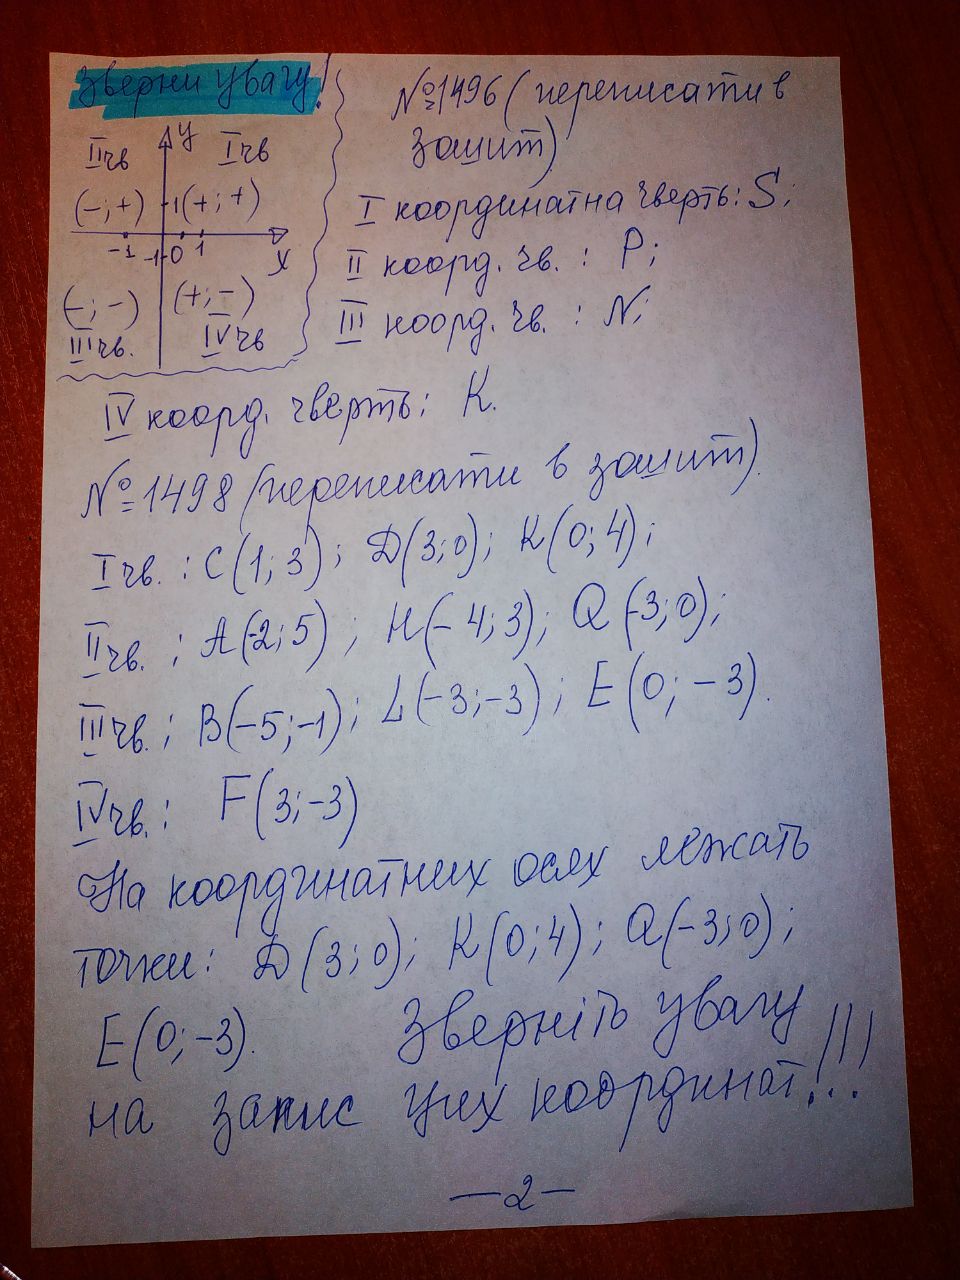 Зверни увагу!
у
II чв
I чв
(-;+)
1
(+;+)
-1
-1
0
1
х
(-;-)
(+;-)
III чв.
IV чв
№1496 (переписати в
зошит)
I координатна чверть: S;
II коорд. чв. : P;
III коорд. чв. : N;
IV коорд. чверть: К.
№1498 (переписати в зошит).
I чв. : С(1; 3); D(3; 0); К(0; 4);
II чв. ; А(-2; 5) ; Н(-4; 3); Q(-3; 0);
III чв. ; В(-5; -1); L(-3; -3); Е(0; -3).
IV чв. : F(3; -3)
На координатних осях лежать
точки: D(3; 0); К(0; 4); Q(-3; 0);
Е(0; -3). Зверніть увагу
на запис цих координат!!!
-2-